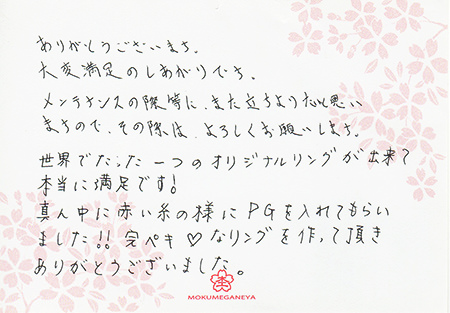 ありがとうございます。
大変満足のしあがりです。
メンテナンスの際等に、また立ちよりたいと思い
ますので、その際は、よろしくお願いします。
世界でたった一つのオリジナルリングが出来て
本当に満足です!
真ん中に赤い糸の様にPGを入れてもらい
ました!!完ペキ♡なリングを作って頂き
ありがとうございました。
MOKUMEGANEYA